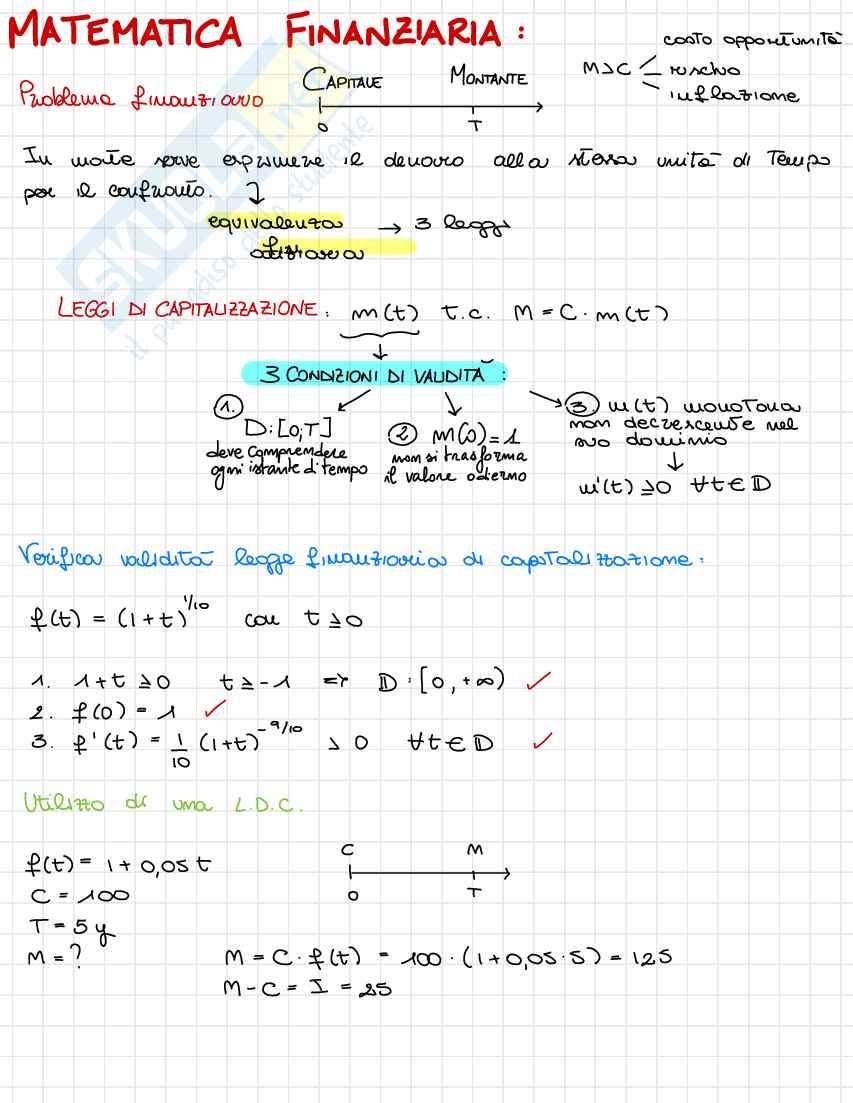 MATEMATICA FINANZIARIA :
costo opportunità
M>C
rischio
inflazione
Problema finanziario
CAPITALE MONTANTE
0 T
In mate serve esprimere il denaro alla stessa unità di Tempo
per il confronto.
equivalenza → 3 leggi
LEGGI DI CAPITALIZZAZIONE : m(t) t.c. M = C · m(t)
3 CONDIZIONI DI VALIDITÀ :
1.
D: [0;T]
deve comprendere
ogni istante di tempo
2 m(0) = 1
non si trasforma
il valore odierno
3. m(t) monotona
non decrescente nel
suo dominio
m'(t) ≥0 ∀t∈D
Verifica validità legge finanziaria di capitalizzazione :
f(t) = (1+t)^1/10 con t ≥0
1. 1+t ≥0 t≥-1 => D : [0, +∞) ✓
2. f(0) = 1 ✓
3. f'(t) = 1/10 (1+t)^-9/10 > 0 ∀t∈D ✓
Utilizzo di una L.D.C.
C M
0 T
f(t) = 1+ 0,05 t
C = 100
T = 5 y
M = ? M = C · f(t) = 100 · (1+0,05·5) = 125
M - C = I = 25
SKUOLA.net
il paradiso dello studente